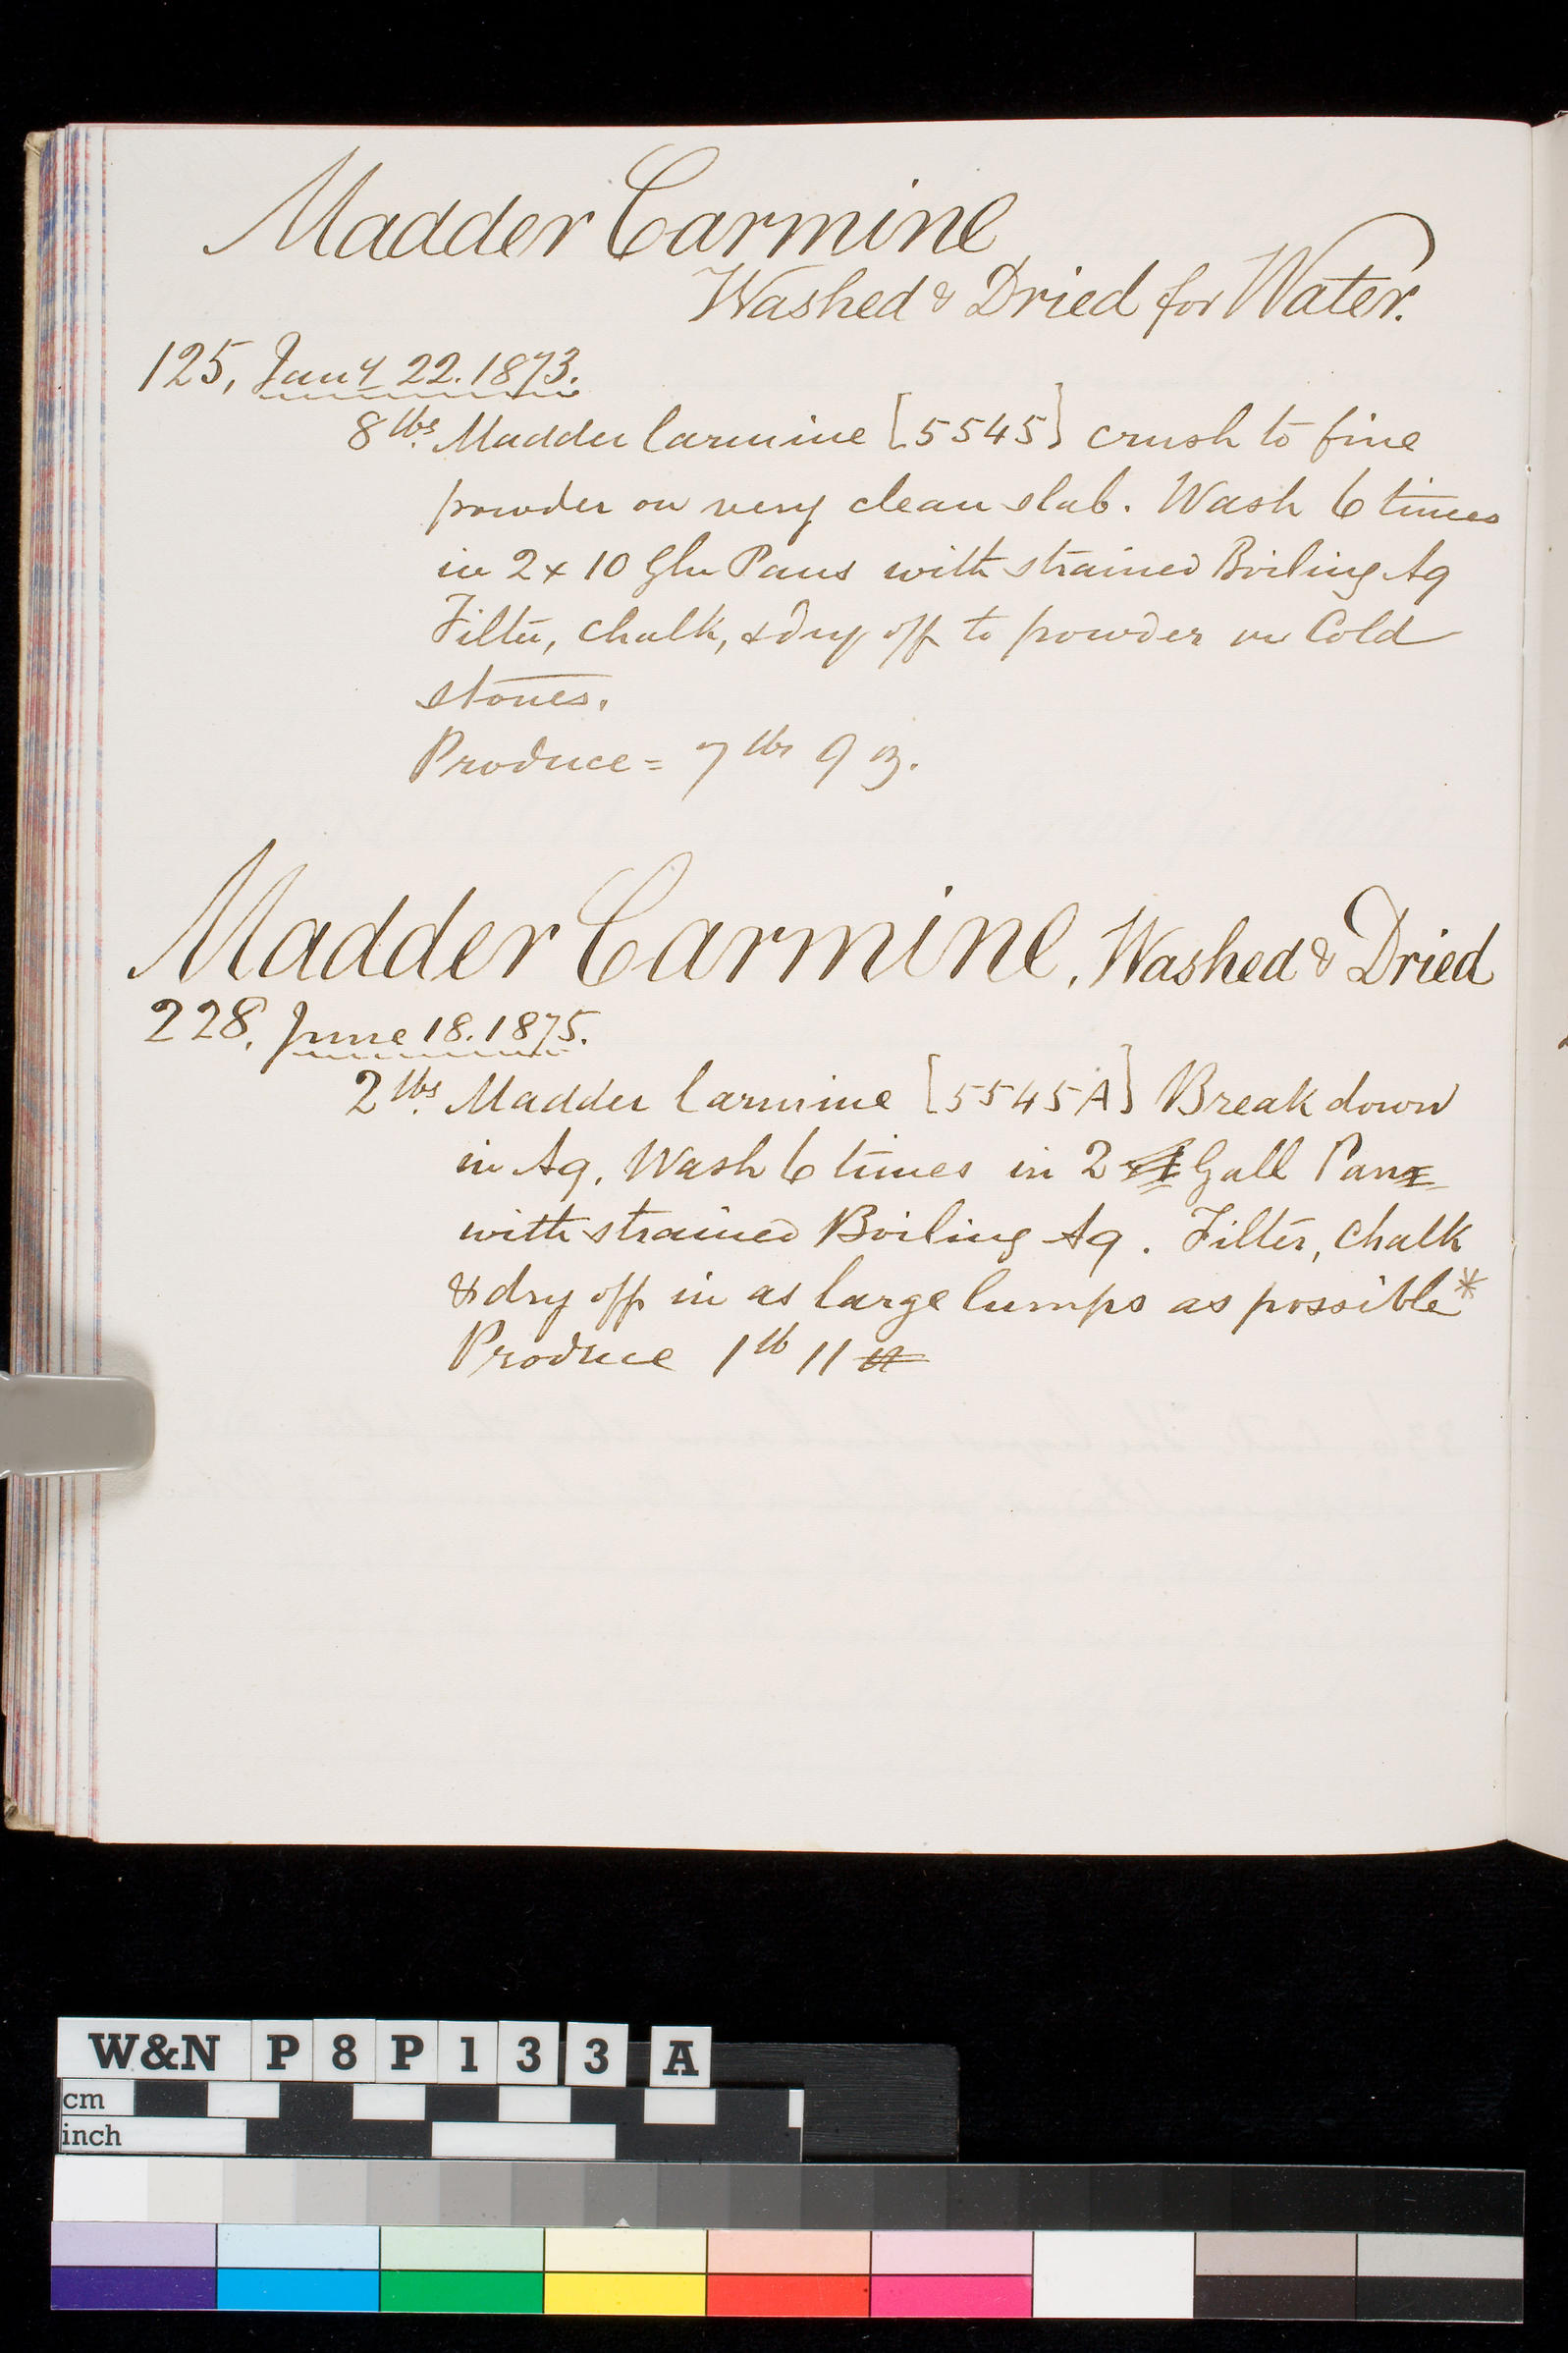 Madder Carmine
Washed & Dried for Water.
125, Jany 22. 1873.
8 lbs. Madder Carmine [5545] crush to fine
powder on very clean slab. Wash 6 times
in 2 x 10 Gln Pans with strained Boiling Aq
Filter, chalk, & dry off to powder on Cold
stones.
Produce = 7 lbs 9 oz.
Madder Carmine, Washed & Dried
228, June 18. 1875.
2 lbs. Madder Carmine [5545A] Break down
in Aq. Wash 6 times in 2 Gall Pan
with strained Boiling Aq. Filter, chalk
& dry off in as large lumps as possible*
Produce 1 lb 11
W&N P8P133 A
cm
inch